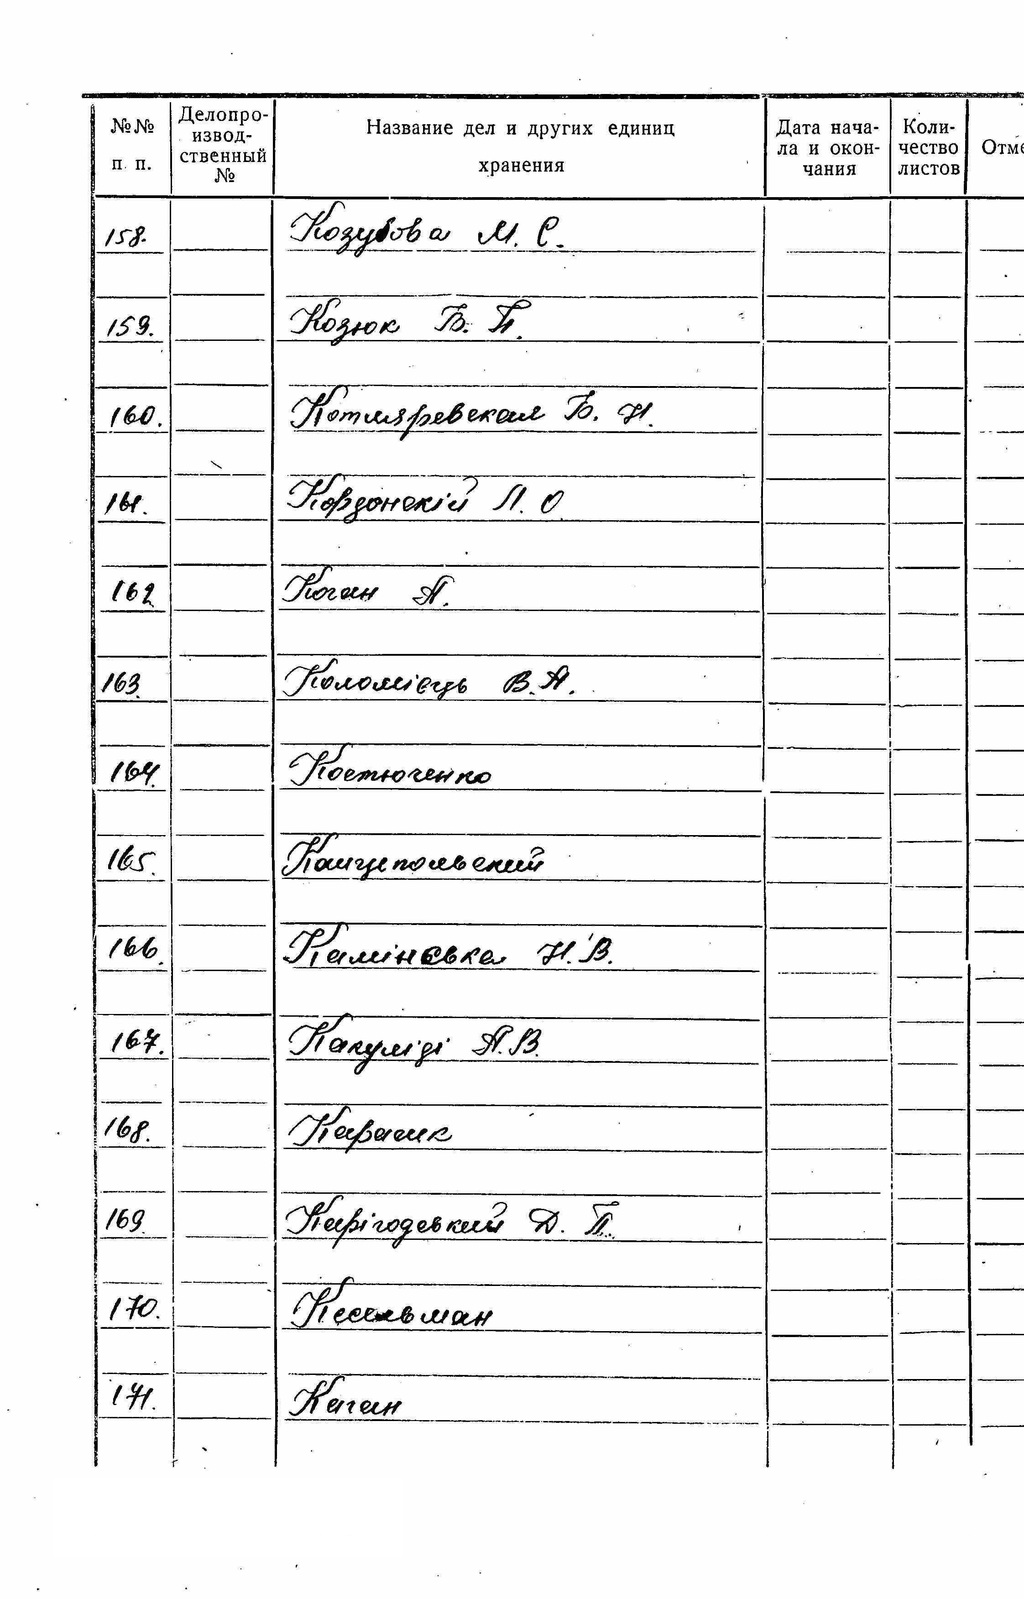 №№ п. п. Делопроизводственный № Название дел и других единиц хранения Дата начала и окончания Количество листов Отме
158. Козубова М. С.
159. Козюк Б. П.
160. Котляревская Б. Н.
161. Кордонскій Л. О
162 Коган А.
163. Коломієць В. А.
164. Костюченко
165. Канцепольский
166. Камінська Н. В.
167. Какуліді А. В.
168. Карасик
169. Карігодський Д. П.
170. Кесельман
171. Каган